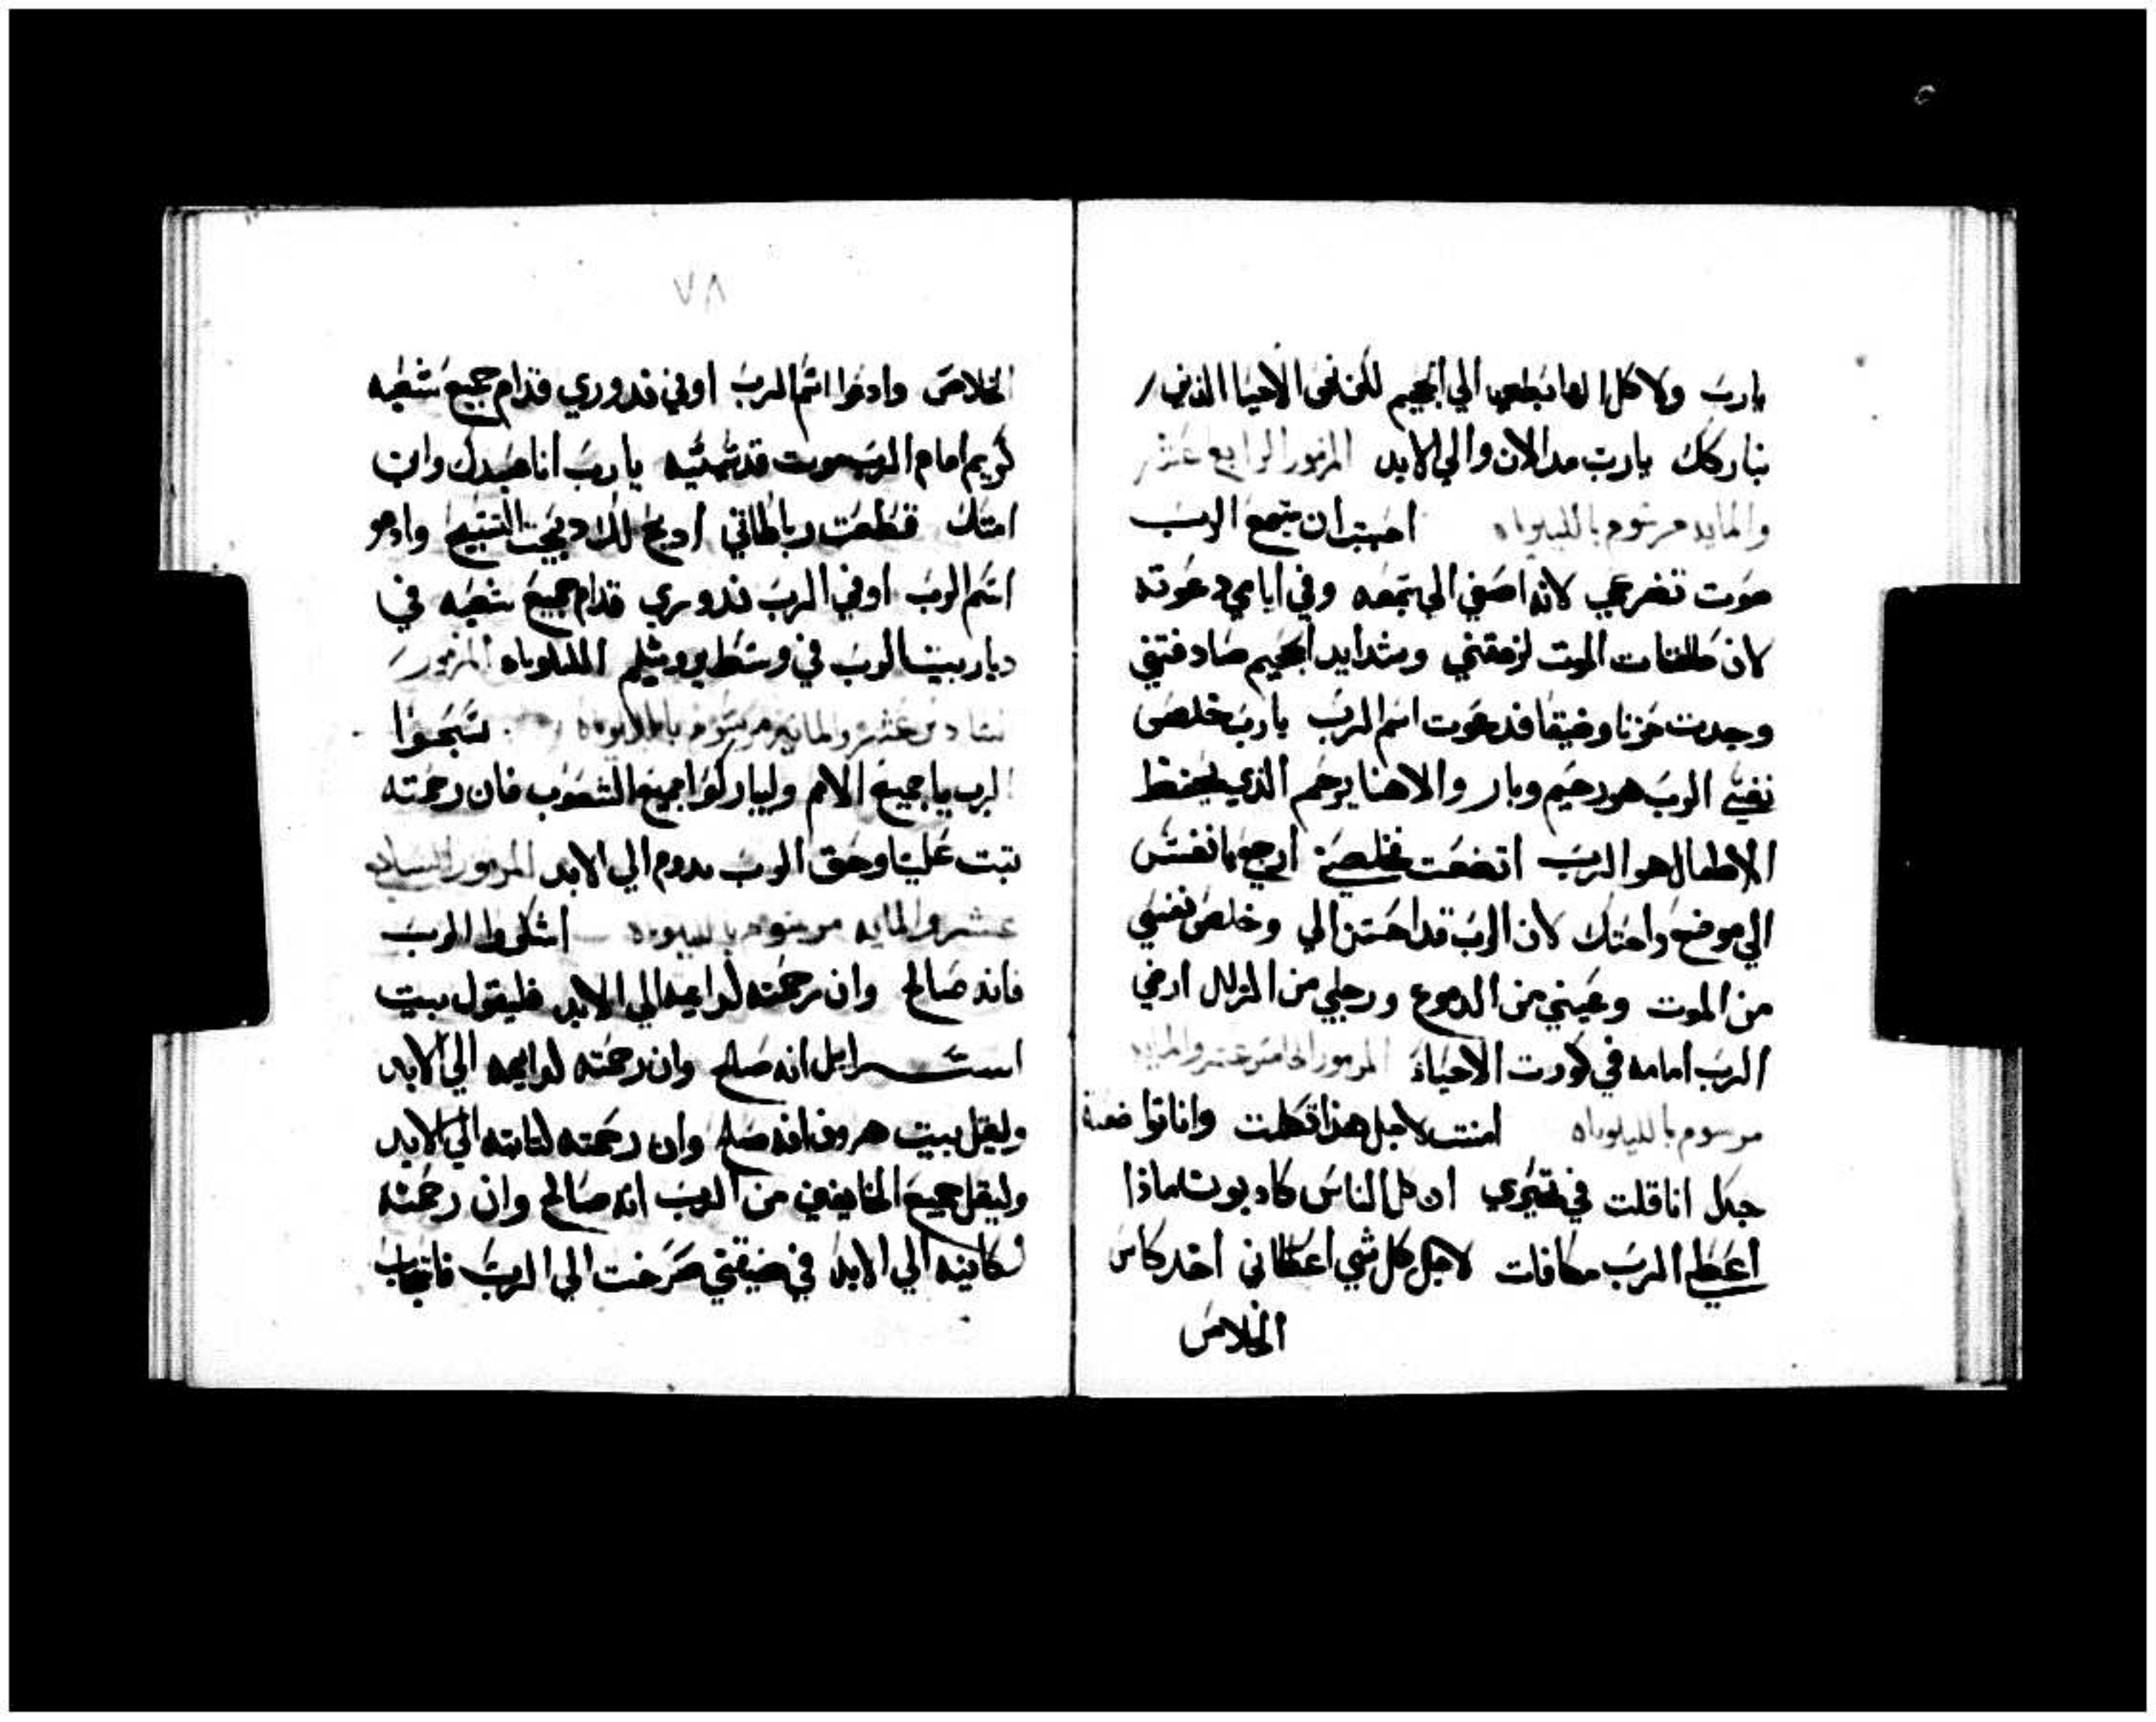 يارب ولا كل الهابطين الي الجحيم لكن نحن الاحيا الذين
نباركك يارب مد الان والي الابد المزمور الرابع عشر
والمايه مرسوم بالليلوياه احببت ان يسمع الرب
صوت تضرعي لانه اصغي الي بسمعه وفي ايامي دعوته
لان طلقات الموت لزمقتني وشدايد الجحيم صادفتني
وجدت حزنا وضيقا فدعوت اسم الرب يارب خلص
نفسي الرب هو رحيم وبار والاهنا يرحم الذي يحفظ
الاطفال هو الرب اتضعت فخلصني ارجعي يا نفس
الي موضع راحتك لان الرب قد احسن الي وخلص نفسي
من الموت وعيني من الدموع ورجلي من الزلل ارضي
الرب امامه في كورت الاحياء المزمور الخامس عشر والمايه
مرسوم بالليلوياه امنت لاجل هذا تكلمت وانا تواضعة
جدل انا قلت في تحيري ان كل الناس كادبون فماذا
اعطي الرب مكافات لاجل كل شي اعطاني اخد كاس
الخلاص
٧٨
الخلاص وادعوا اسم الرب اوفي ندوري قدام جميع شعبه
كريم امام الرب موت قديسيه يارب انا عبدك وابن
امتك قطعت رباطاتي ادبح لك دبيحت التسبيح وادعو
اسم الرب اوفي الرب ندوري قدام جميع شعبه في
ديار بيت الرب في وسط يروشليم الليلوياه المزمور
سادس عشر والمايه مرسوم بالليلوياه سبحوا
الرب يا جميع الامم وليباركوا جميع الشعوب فان رحمته
تبت علينا وحق الرب يدوم الي الابد المزمور السابع
عشر والمايه مرسوم بالليلوياه اشكروا الرب
فانه صالح وان رحمته لدايمه الي الابد فليقول بيت
اسرايل انه صلح وان رحمته لدايمه الي الابد
وليقل بيت هرون انه صلح وان رحمته لتابته الي الابد
وليقل جميع الخايفين من الرب انه صالح وان رحمته
لكاينه الي الابد في ضيقتي صرخت الي الرب فاتجاب